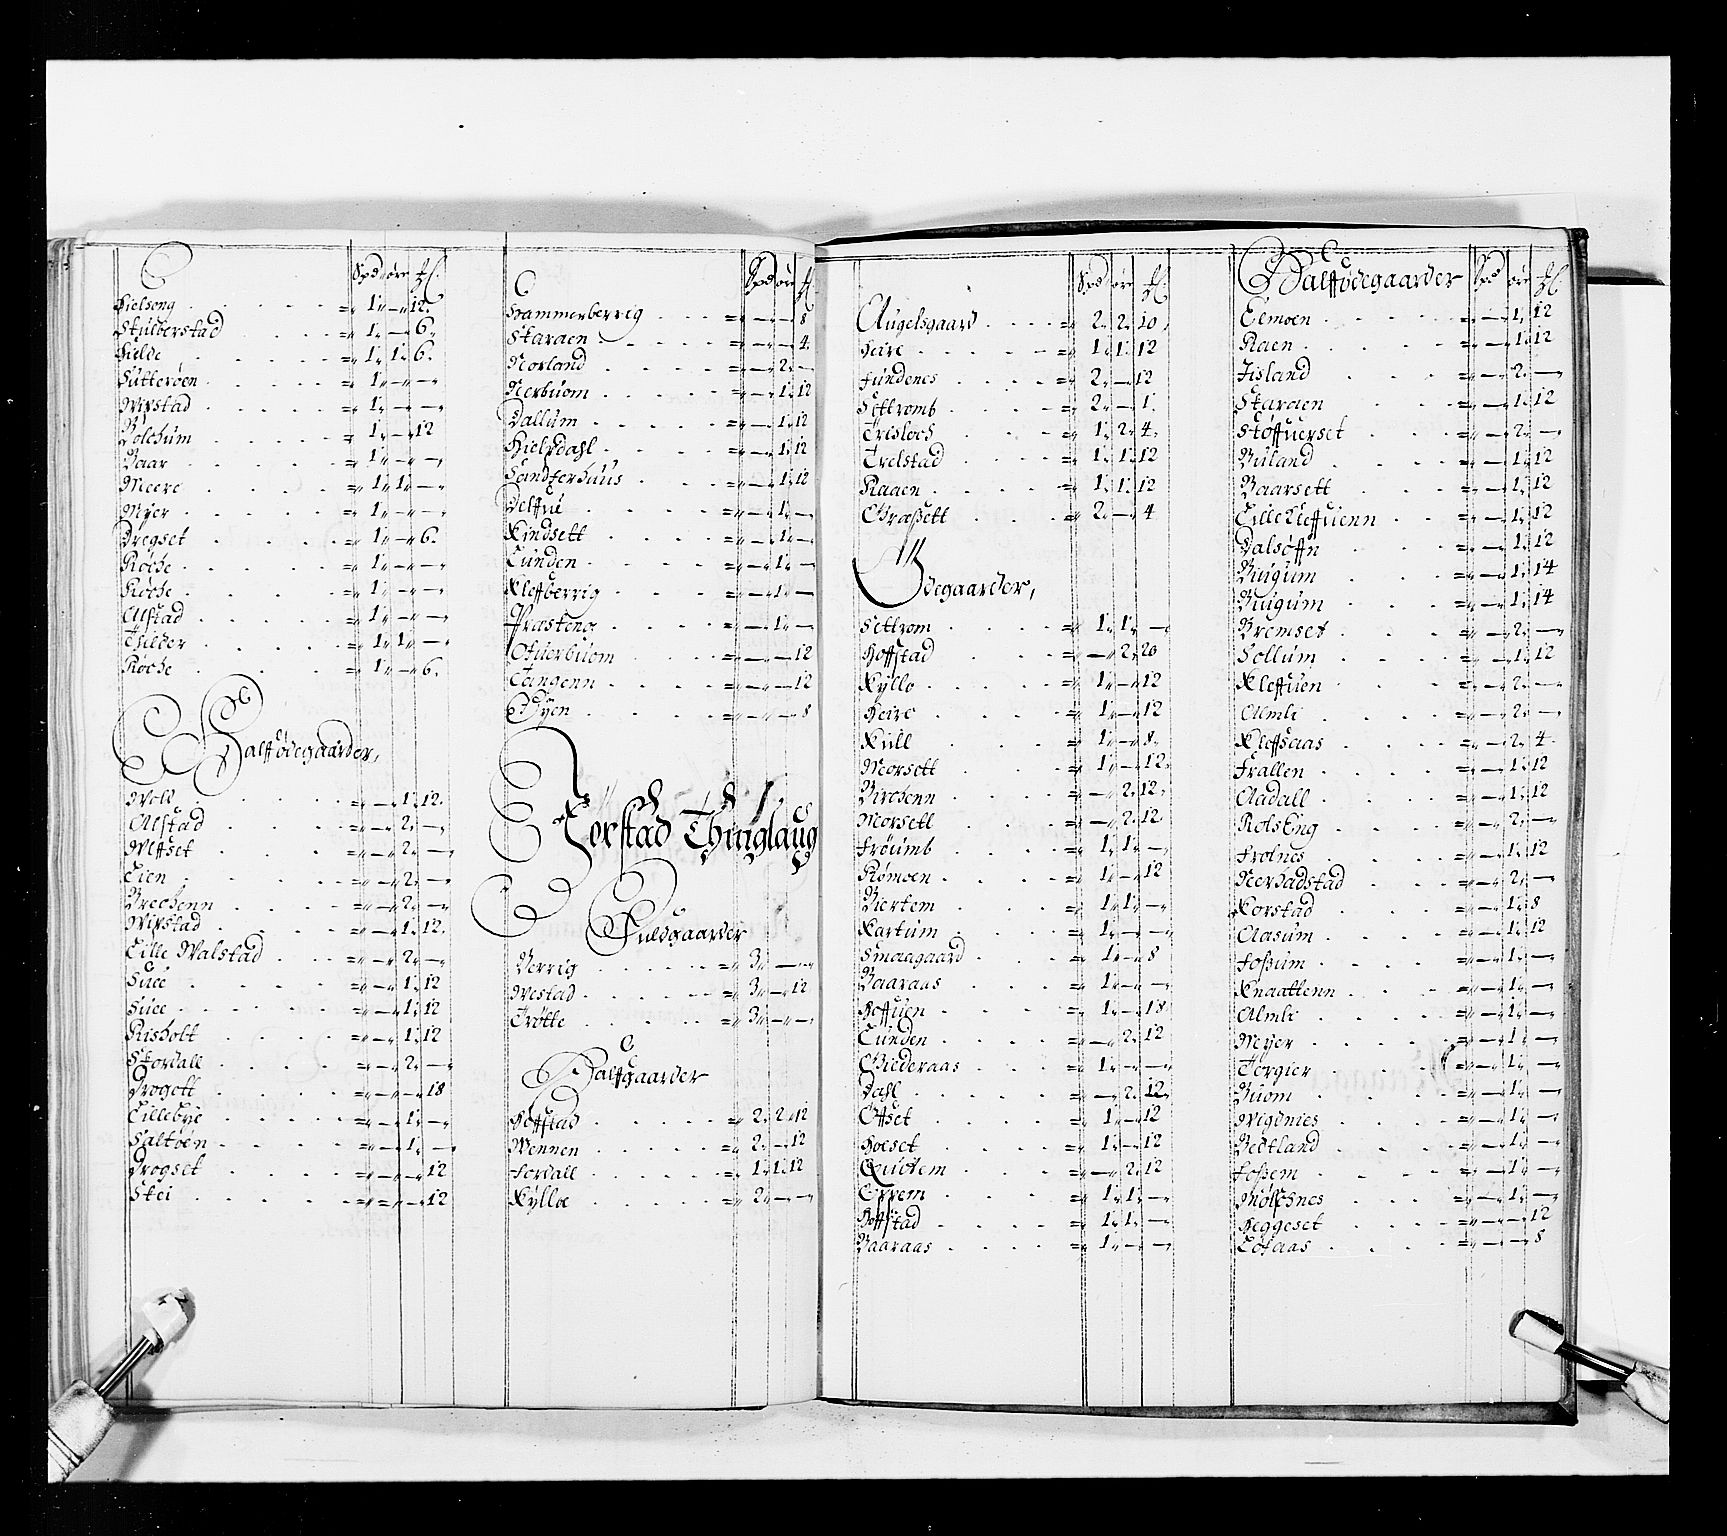 Spd ører ₰
Hielseng = 1 „ — 12.
Skulberstad = 1 „ — 6.
Hielde = 1 „ 1 „ 6.
Sutterøen = 1 „ — „ —
Wixstad = 1 „ — „ —
Bolchum = 1 „ — 12
Baar = 1 „ — „ —
Meere = 1 „ 1 „ —
Myer = 1 „ — „ —
Dregset = 1 „ — 6.
Røche = 1 „ — „ —
Røche = 1 „ — „ —
Alstad = 1 „ — „ —
Thilder = 1 „ 1 „ —
Røche = 1 „ — 6.
Halffødegaarder,
Woll = „ — „ 1. 12.
Alstad = „ — „ 2. —
Weffset = „ — „ 2. —
Lien = „ — „ 2. —
Brechenn = „ — „ 2. —
Wixstad = „ — „ 1. 12.
Lille Walstad = „ — „ 2. —
Suee = „ — „ 1. 12
Suee = „ — „ 1. 12
Risholt = „ — „ 1. 12
Stordall = „ — „ 2. —
Drogott = „ — „ — 18
Lillebye = „ — „ 1. —
Saltøen = „ — „ 1. —
Drogset = „ — „ — 12
Stei = „ = „ — 12
Spd ører ₰
Hammerberrig = „ — „ — 8
Skaraen = „ — „ — 4.
Norland = „ — „ 2. —
Nerbuom = „ — „ 1. 12
Dallum = „ — „ 1. 12
Hielpdahl = „ — „ 1. 12
Sandferhuus = „ — „ 1. 12
Delffue = „ — „ 1. —
Kindsett = „ — „ 1. —
Lunden = „ — „ 1. —
Kleffberrig = „ — „ 1. —
Præsteng = „ — „ 1. —
Ofuerbuom = „ — „ — 12
Tangenn = „ — „ — 12
Øyen = „ — „ — 8
Korstad Thinglaug
Fuldgaarder
Berrig = 3 „ — „ —
Westad = 3 „ — 12
Trøtte = 3 „ — „ —
Halffgaarder
Hoffstad = 2. 2. 12
Wennen = 2. — 12
Fordall = 1. 1. 12
Kylloe = 2. — „ —
Spd ører ₰
Augelsgaard = 2. 2. 10
Heire = 1. 1. 12
Fundenes = 2. — 12
Settromb = 2. — 1.
Treloch = 1. 2. 4.
Trelstad = 1. 1. 12
Raaen = 1. 1. 12
Græsett = 2. — 4
Ødegaarder,
Settrom = 1. 1. —
Hoffstad = „ — 2. 20
Kyllo = 1 „ — 12
Heire = 1 „ — 12
Kull = 1 „ — 8.
Morsett = 1 „ — 12.
Birchenn = „ — 2. 12.
Morsett = „ — 2. 12.
Frøcumb = 1. 1. —
Rømoen = 1 „ — 12
Biertem = 1 „ 1. —
Kartum = 1 „ — „ —
Smaagaard = 1 „ — 8
Baaraas = 1 „ — „ —
Hoffuen = 1 „ — 18.
Lunden = „ — 2. 12
Giederaas = 1 „ — „ —
Dahl = „ — 2. 12.
Offset = 1 „ — 12
Hoeset = 1 „ — 12
Quidem = „ — 2. 12
Errem = 1 „ 1. —
Hoffstad = 1 „ 1. —
Baaraas = 1 „ — „ —
Halffødegaarder Spd ører ₰
Elmoen = „ — „ 1. 12
Raen = „ — „ 1. 12
Fisland = „ — „ 2. —
Skaraen = „ — „ 1. 12
Støffuerset = „ — „ 2. —
Buland = „ — „ 1. 12
Baarsett = „ — „ 1. 12
Lille Kleffuenn = „ — „ 1. 12
Dalsøffn = „ — „ 1. 12
Buugum = „ — „ 1. 14
Buugum = „ — „ 1. 14
Bremset = „ — „ 2. —
Sollum = „ — „ 1. 12
Kleffuen = „ — „ 2. —
Almli = „ — „ 2. —
Kleffsaas = „ — „ 2. 4.
Frallen = „ — „ 1. 12
Aadall = „ — „ 1. 12
Rolseng = „ — „ 2. —
Frolnes = „ — „ 1. 12
Nerhadstad = „ — „ 2. —
Korstad = „ — „ 1. 8
Aasum = „ — „ 1. 12
Fossum = „ — „ 1. —
Knaattenn = „ — „ 1. —
Almli = „ — „ 1. —
Meyer = „ — „ 1. —
Torgier = „ — „ 1. —
Buom = „ — „ 1. —
Wigdnies = „ — „ 1. —
Bedtland = „ — „ 1. —
Fossem = „ — „ 1. —
Mølchnes = „ — „ 1. —
Heggeset = „ — „ — 12
Løfaas = „ — „ — 8